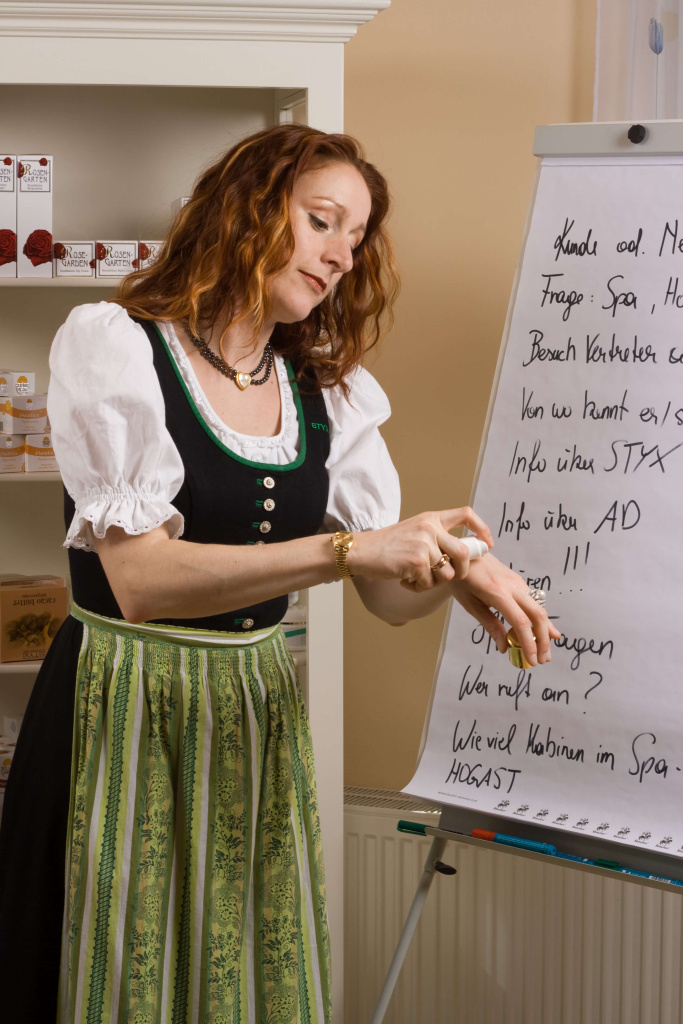 ROSEN-
GARTEN
ROSE-
GARDEN
ROSEN-
GARTEN
cacao butter
STYX
Kunde od. Ne
Frage: Spa, Ho
Besuch Vertreter o
Von wo kennt er/s
Info über STYX
Info über AD
ören !!!
Spa Fragen
Wer ruft an?
Wie viel Kabinen im Spa.
HOGAST